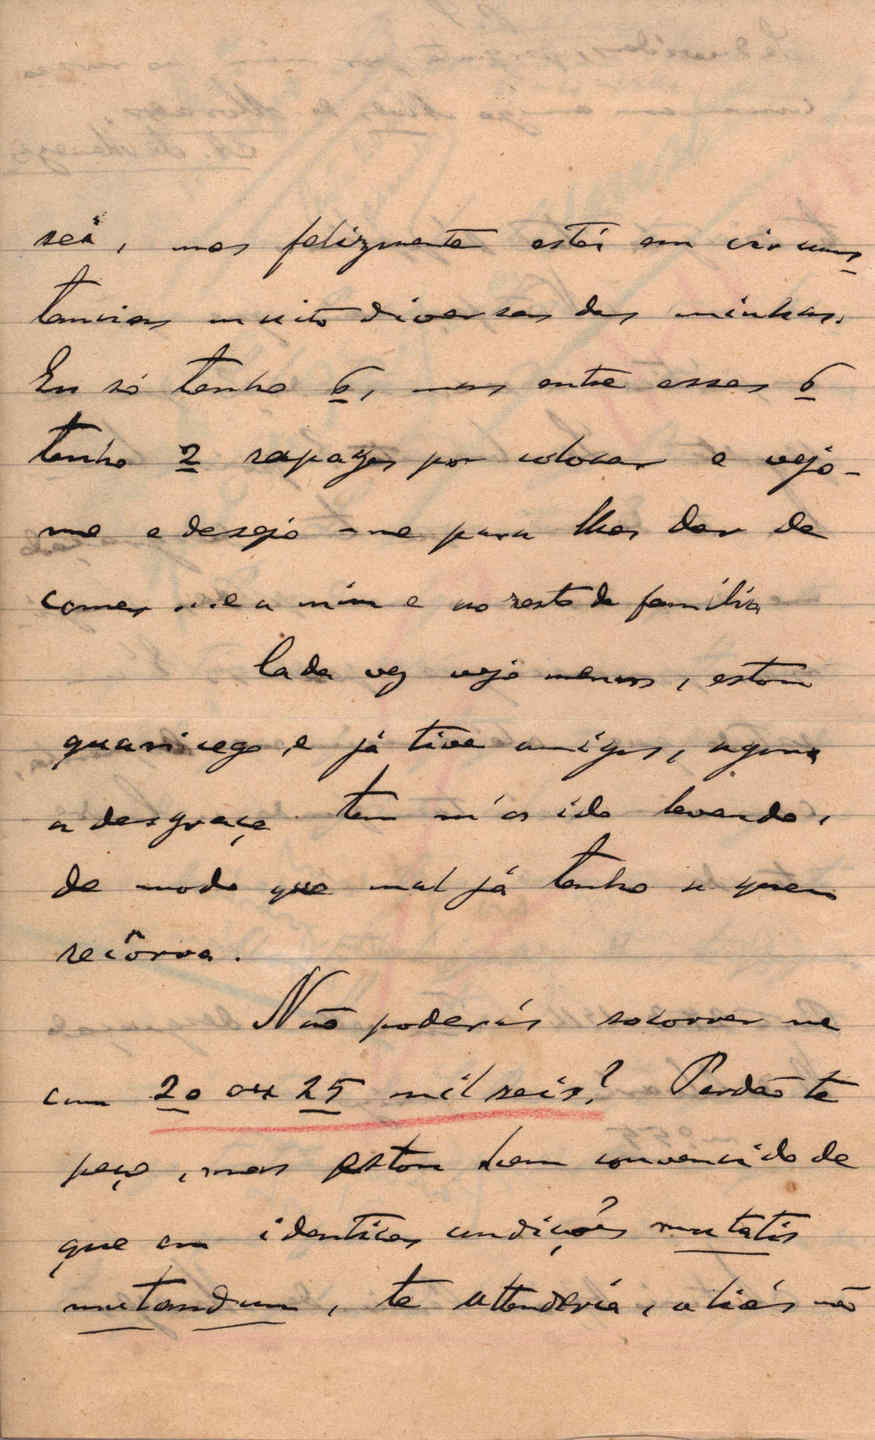 sei, mas felizmente estás em circums
tancias muito diversas das minhas.
Eu só tenho 6, mas entre esses 6
tenho 2 rapazes por colocar e vejo-
me e desejo-me para lhes dar de
comer ... e a mim e ao resto da familia
Cada vez vejo menos, estou
quasi cego e já tive amigos, agora
a desgraça tem m'os ido levando,
de modo que mal já tenho a quem
recôrra.
Não poderás socorrer me
com 20 ou 25 mil reis? Perdão te
peço, mas estou bem convencido de
que em identicas condições mutatis
mutandum, te attenderia, aliás não